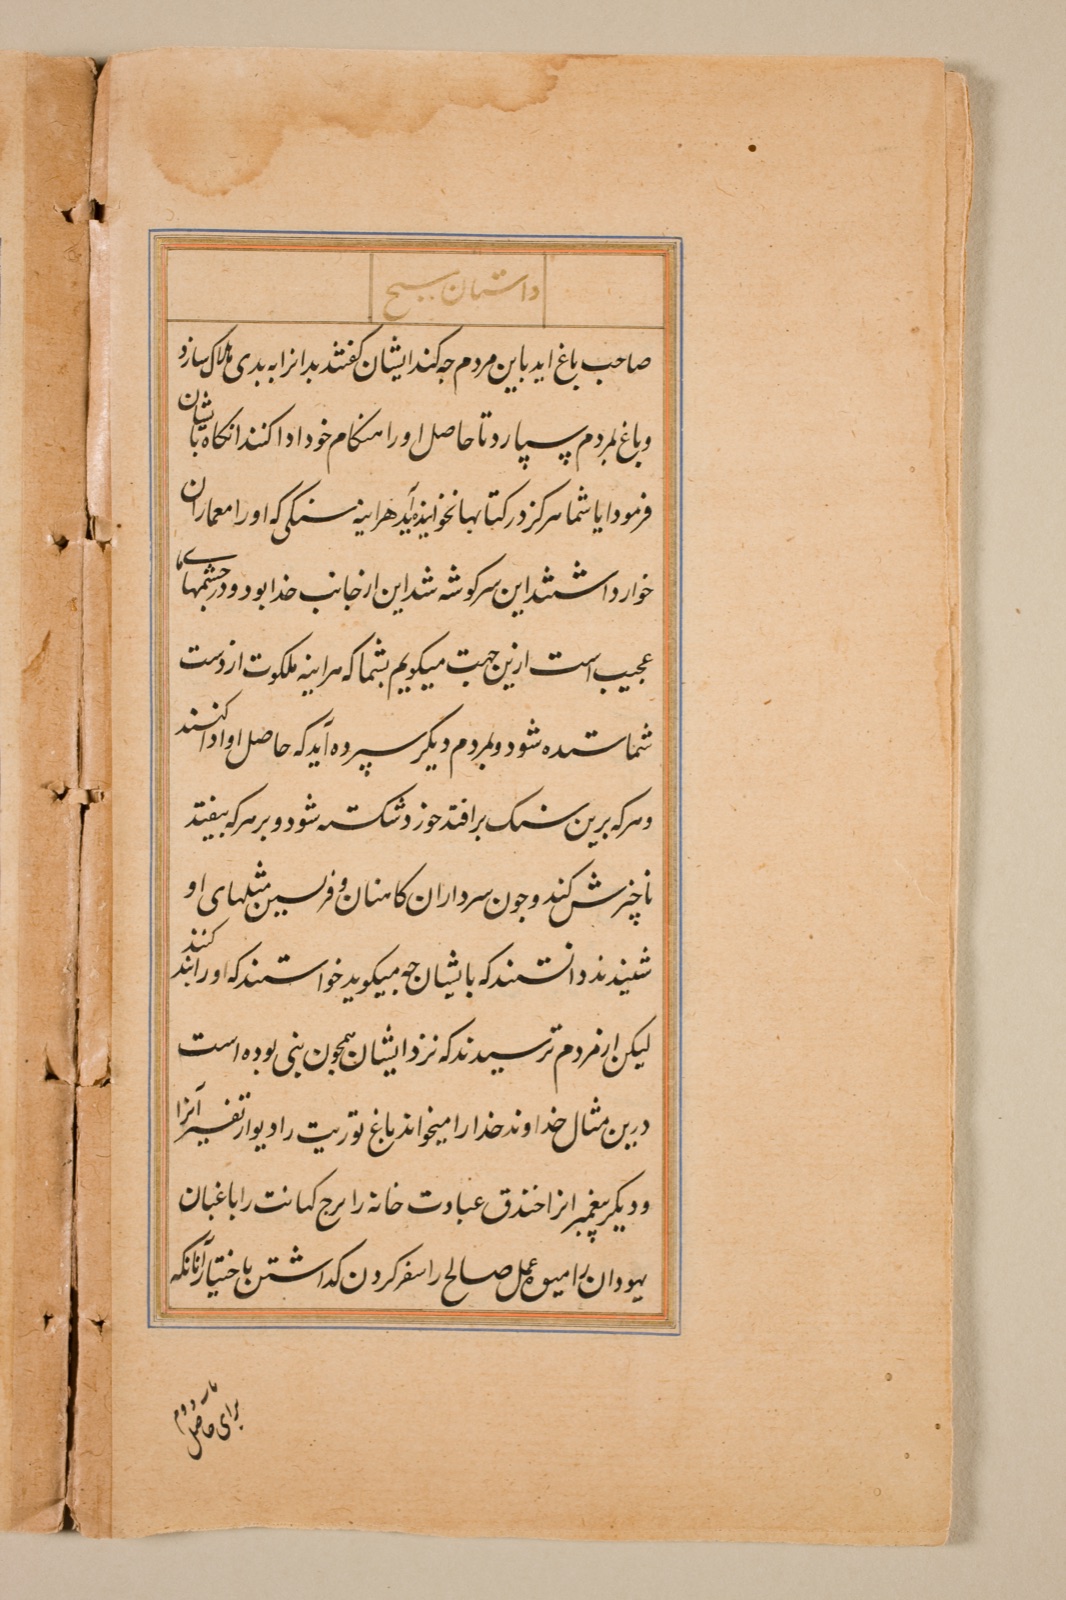 داستان مسیح
صاحب باغ اید باین مردم جه کند ایشان کفتند بدانرا به بدی هلاک سازد
و باغ بمردم سپارد تا حاصل او را هنکام خود ادا کنند انکاه بایشان
فرمود ایا شما هرکز در کتابها نخوانده آید هراینه سنکی که او را معماران
خوار داشتند این سر کوشه شد این از جانب خدا بود و در جشمهای ما
عجیب است ازین جهت میکویم بشما که هراینه ملکوت از دست
شما ستده شود و بمردم دیکر سپرده آید که حاصل او ادا کنند
و هرکه برین سنک بر افتد خورد شکسته شود و بر هرکه بیفتد
ناچیزش کند و جون سرداران کاهنان و فریسین مثلهای او
شنیدند دانستند که بایشان جه میکوید خواستند که او را بند کنند
لیکن از مردم ترسیدند که نزد ایشان همجون نبی بوده است
درین مثال خداوند خدا را میخواند باغ توریت را دیوار تفسیر آنرا
و دیکر پیغمبرانرا خندق عبادت خانه را برج کهانت را باغبان
یهودان را میوه عمل صالح را سفر کردن کداشتن با ختیار آنانکه
برای حاصل
بار دوم